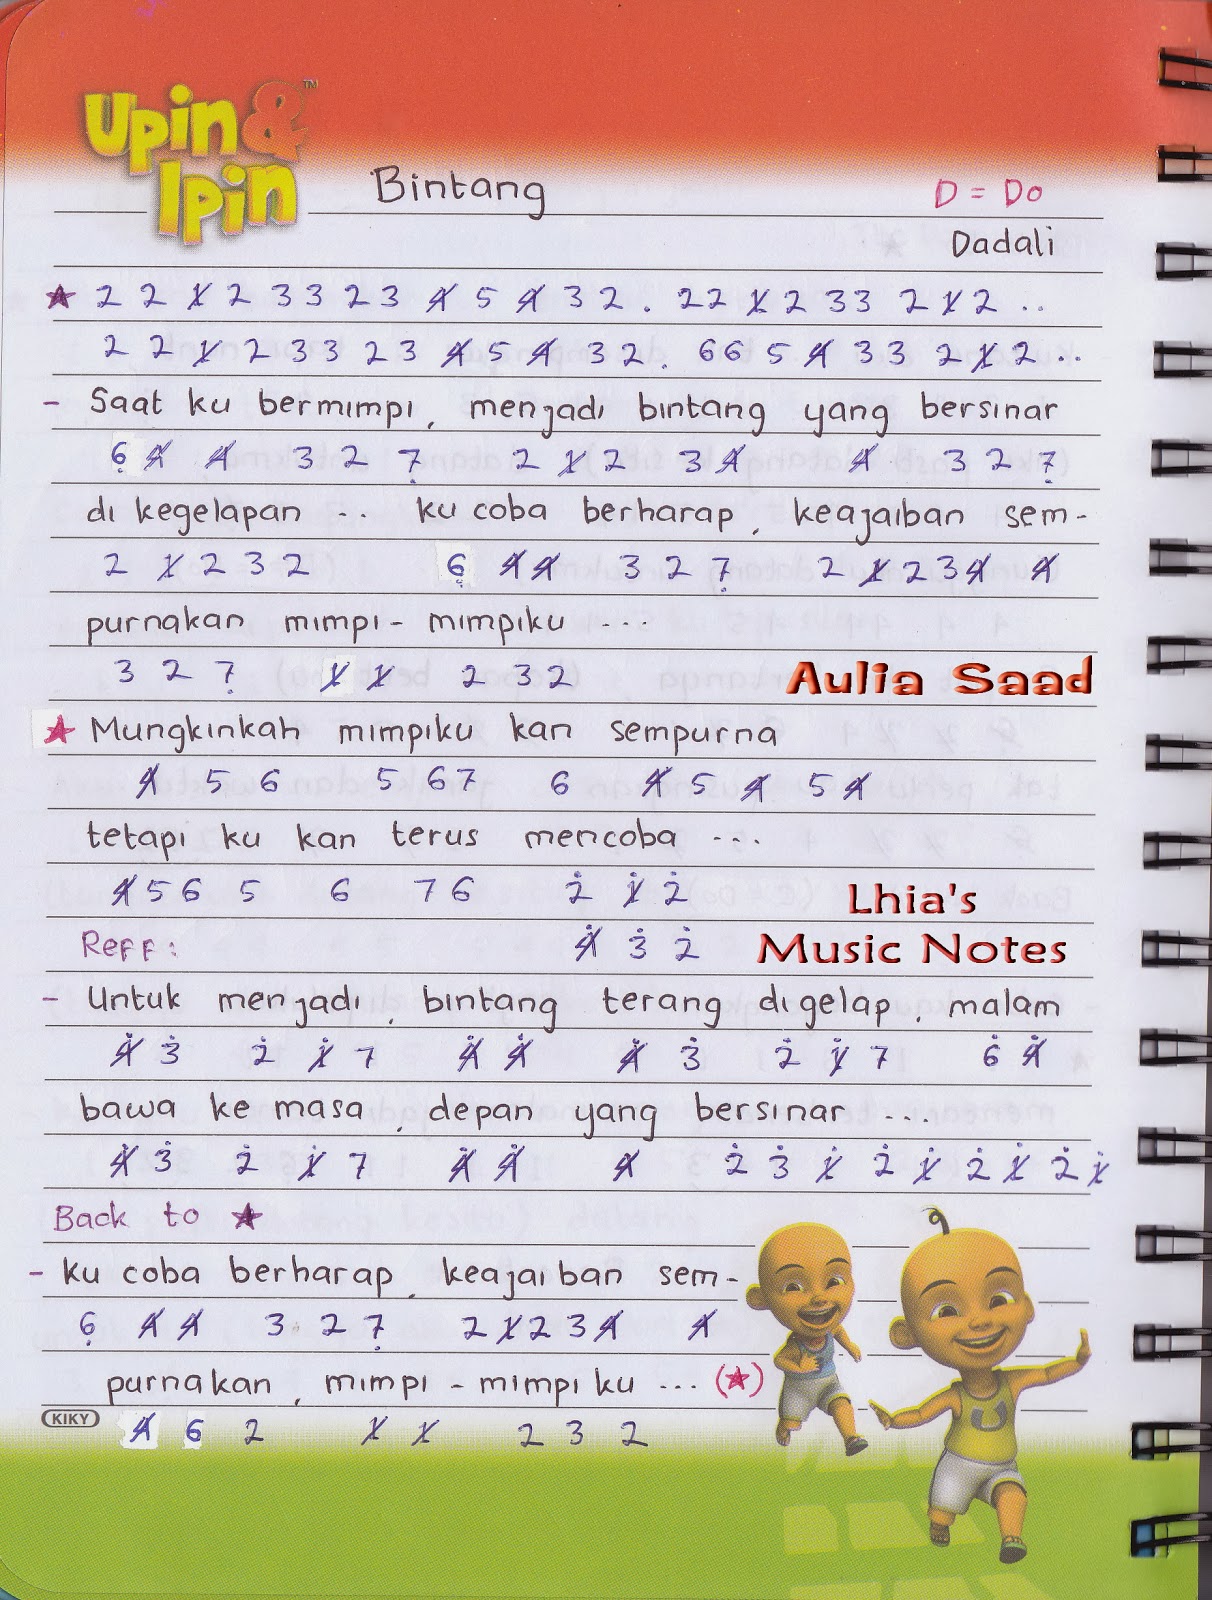 Upin &™
Ipin
Bintang
D = Do
Dadali
★ 2 2 1̸ 2 3 3 2 3 4̸ 5 4̸ 3 2 . 2 2 1̸ 2 3 3 2 1̸ 2 ..
2 2 1̸ 2 3 3 2 3 4̸ 5 4̸ 3 2 . 6 6 5 4̸ 3 3 2 1̸ 2 ..
- Saat ku bermimpi, menjadi bintang yang bersinar
6̣ 4̸ 4̸ 3 2 7̣ 2 1̸ 2 3 4̸ 4̸ 3 2 7̣
di kegelapan ... ku coba berharap, keajaiban sem-
2 1̸ 2 3 2 6̣ 4̸ 4̸ 3 2 7̣ 2 1̸ 2 3 4̸ 4̸
purnakan mimpi - mimpiku ...
3 2 7̣ 1̸ 1̸ 2 3 2
Aulia Saad
★ Mungkinkah mimpiku kan sempurna
4̸ 5 6 5 6 7 6 4̸ 5 4̸ 5 4̸
tetapi ku kan terus mencoba ...
4̸ 5 6 5 6 7 6 2̇ 1̸̇ 2̇
Lhia's
Reff : 4̸̇ 3̇ 2̇
Music Notes
- Untuk menjadi, bintang terang digelap, malam
4̸̇ 3̇ 2̇ 1̸̇ 7 4̸̇ 4̸̇ 4̸̇ 3̇ 2̇ 1̸̇ 7 6̇ 4̸̇
bawa ke masa, depan yang bersinar ....
4̸̇ 3̇ 2̇ 1̸̇ 7 4̸̇ 4̸̇ 4̸̇ 2̇ 3̇ 1̸̇ 2̇ 1̸̇ 2̇ 1̸̇ 2̇ 1̸̇
Back to ★
- ku coba berharap, keajaiban sem-
6̣ 4̸ 4̸ 3 2 7̣ 2 1̸ 2 3 4̸ 4̸
purnakan, mimpi - mimpi ku ... (★)
KIKY
4̸ 6 2 1̸ 1̸ 2 3 2